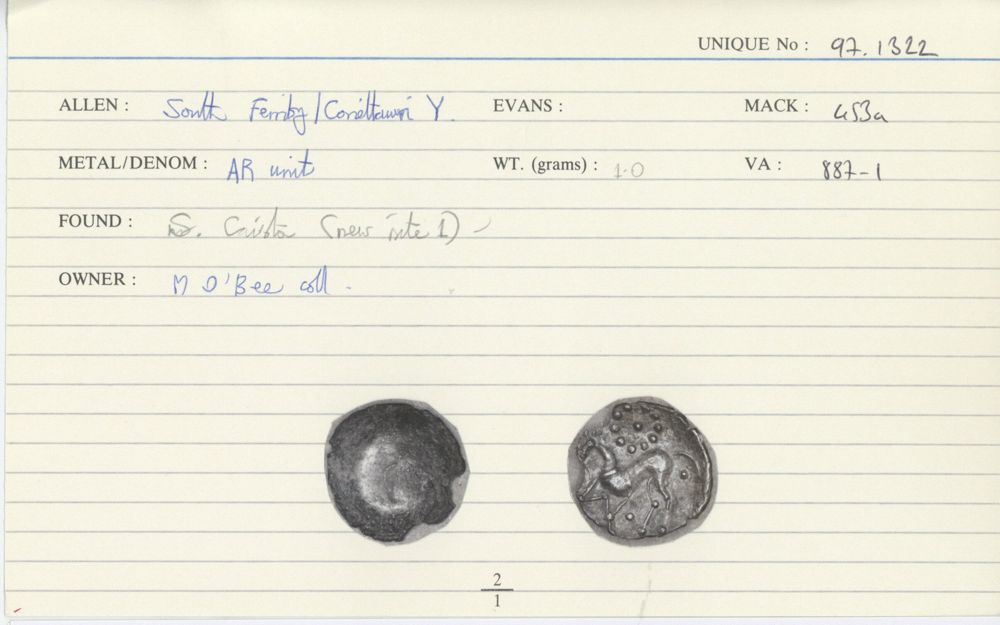 UNIQUE No : 97.1322
ALLEN : South Ferriby/Corieltauvi Y. EVANS : MACK : 453a
METAL/DENOM : AR unit WT. (grams) : 1.0 VA : 887-1
FOUND : (new site 1) -
OWNER : M O'Bee coll.
2
1